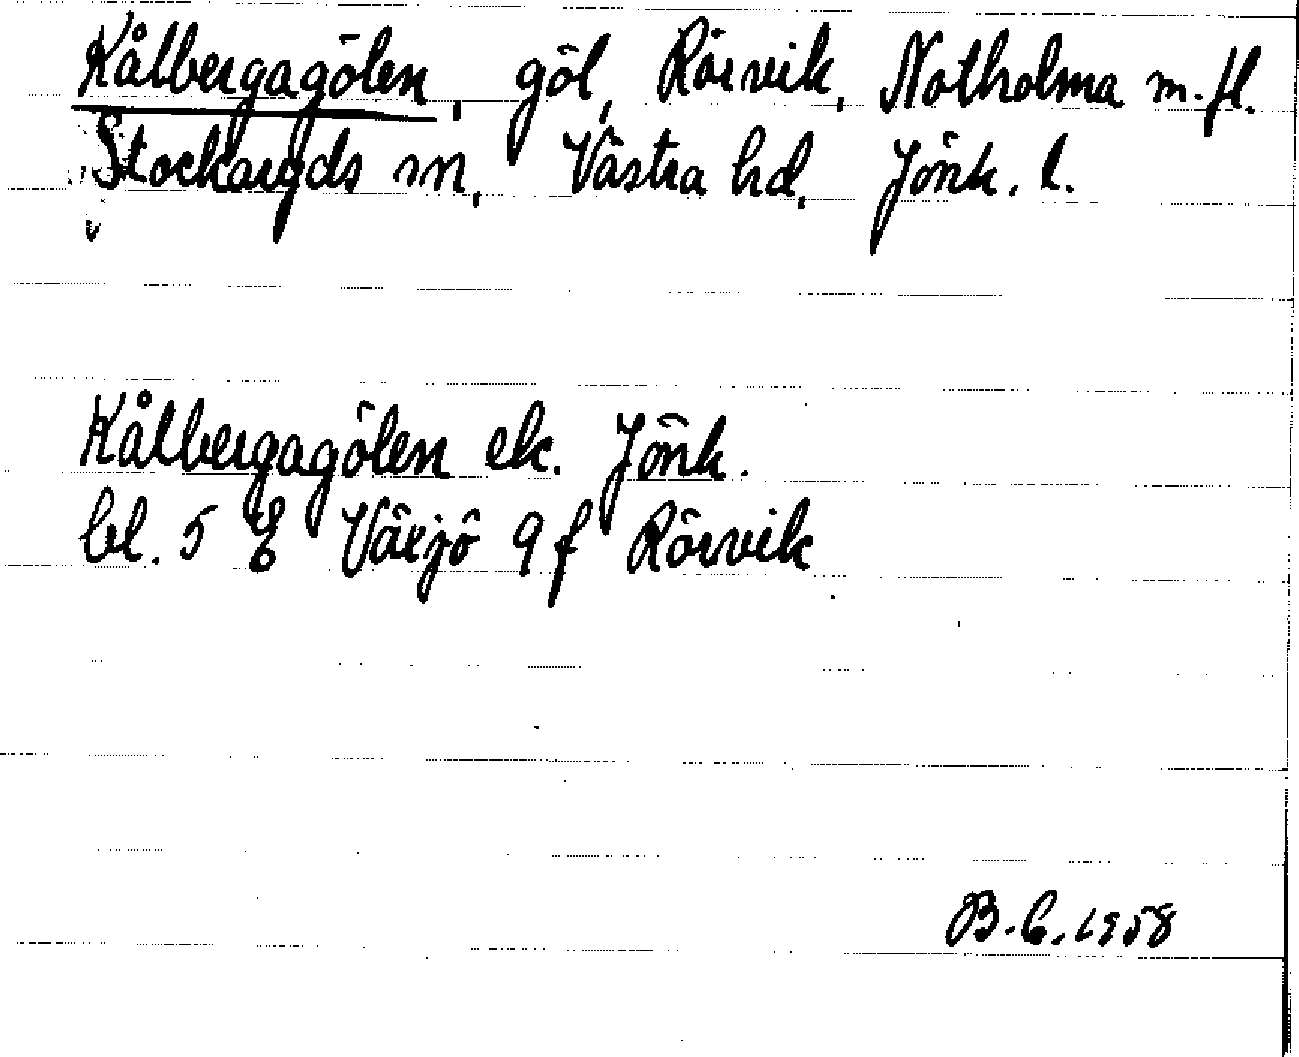 Kålbergagölen, göl, Rörvik, Notholma m.fl.
Stockaryds sn, Västra hd, Jönk. l.
Kålbergagölen ek. Jönk.
bl. 5 E Växjö 9 f Rörvik
B.C. 1958